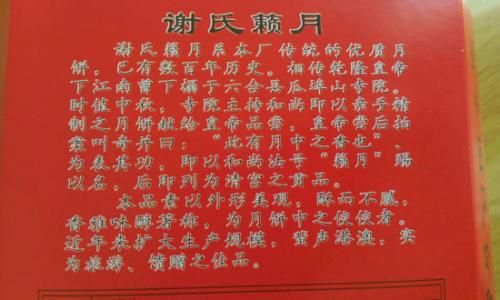 谢氏籁月
谢氏籁月系本厂传统的优质月
饼，已有数百年历史。相传乾隆皇帝
下江南曾下榻于六合县瓜埠山寺院。
时值中秋，寺院主持和尚即以亲手精
制之月饼献给皇帝品尝，皇帝尝后拍
案叫奇开曰：“此有月中之香也”、
为表其功，即以和尚法号“籁月”赐
以名，后即列为清宫之贡品。
本品素以外形美观，酥而不腻，
香雅味醇著称，为月饼中之佼佼者。
近年来扩大生产规模，蜚声港澳，实
为旅游、馈赠之佳品。